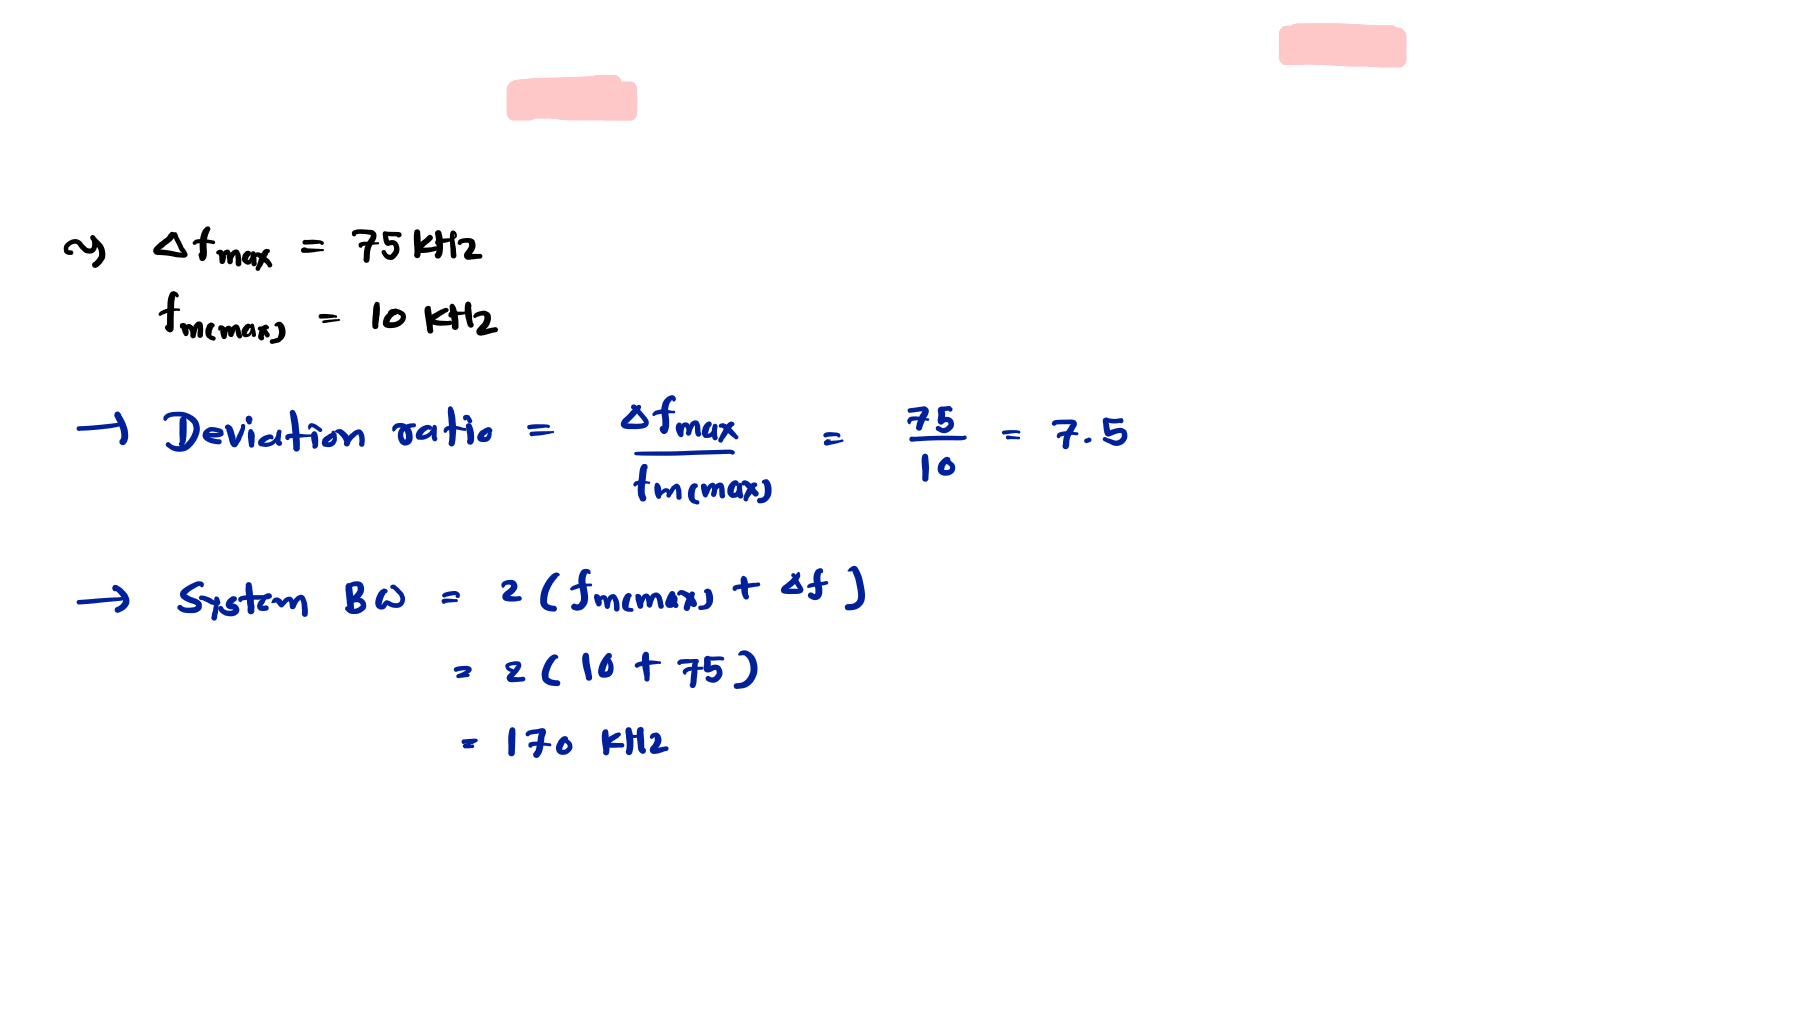 ~> Δf_max = 75 KHz
f_m(max) = 10 KHz
→ Deviation ratio = Δf_max / f_m(max) = 75 / 10 = 7.5
→ System BW = 2 ( f_m(max) + Δf )
= 2 ( 10 + 75 )
= 170 KHz